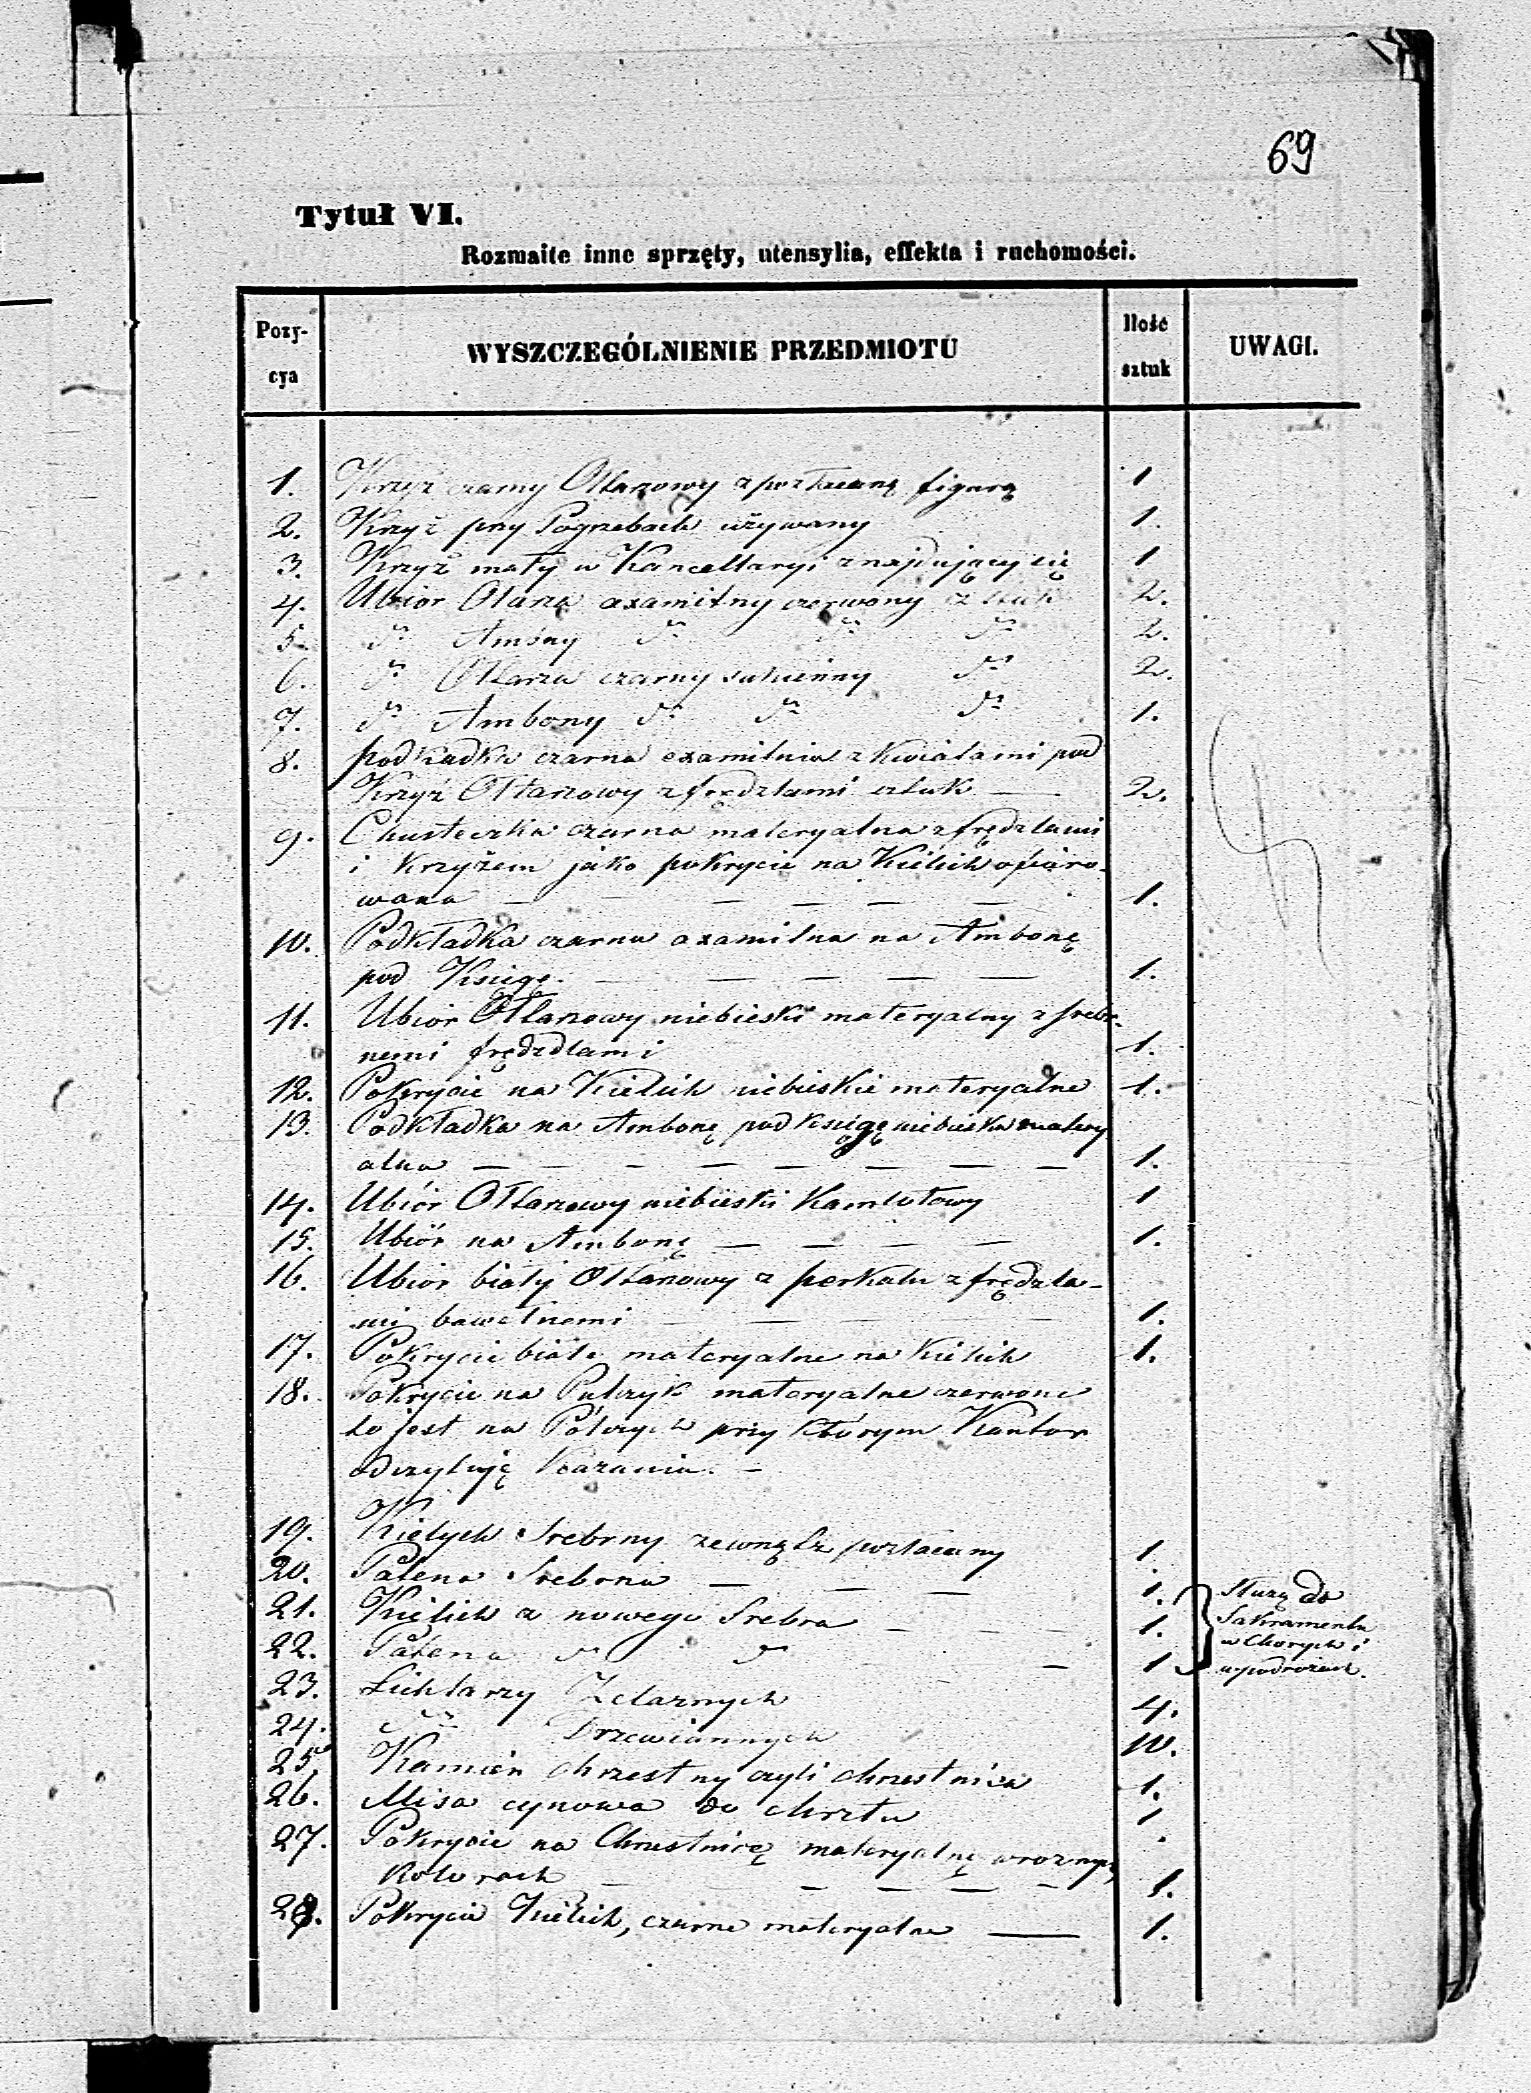 69
Tytuł VI.
Rozmaite inne sprzęty, utensylia, effekta i ruchomości.
Pozy-
cya
WYSZCZEGÓLNIENIE PRZEDMIOTU
Ilość
sztuk
UWAGI.
1. Krzyż czarny Ołtarzowy z pozłacaną figurą 1
2. Krzyż przy Pogrzebach używany 1.
3. Krzyż mały w Kancellaryi znajdujący się 1
4. Ubior Ołarza axamitny czerwony sztuk 2.
5. do Ambny do do do 2.
6. do Ołtarza czarny sukienny do 2.
7. do Ambony do do do 1.
8. podkładka czarna axamitna z kwiatami pod
Krzyż Ołtarzowy z frędzlami sztuk — 2.
9. Chusteczka czarna materyalna z frędzlami
i Krzyżem jako pokrycie na Kielich ofiaro-
wana — — — — — 1.
10. Podkładka czarna axamitna na Ambonę
pod Księgę. — — — — — 1.
11. Ubior Ołtarzowy niebieski materyalny z srebr-
nemi frędzdlami 1.
12. Pokrycie na Kielich niebieskie materyalne 1.
13. Podkładka na Ambonę pod księgę niebieska matery
alna — — — — — — — — 1.
14. Ubiór Ołtarzowy niebieski Kamlotowy 1
15. Ubiór na Ambonę — — — — 1.
16. Ubiór biały Ołtarzowy z perkalu z frędzla-
mi bawełnemi — — — 1.
17. Pokrycie białe materyalne na Kielich 1.
18. Pokrycie na Pulzyk materyalne czerwone
to jest na Pólzyk przy którym Kantor
odczytuję Kazania. —
19. Kielych Srebrny zewnątz pozłacany 1
20. Patena Srebrna — — — 1.
21. Kielich z nowego Srebra — — — 1.
22. Patena do do — 1
Służą do
Sakramentu
w Chorych i
w podrożach.
23. Lichtarzy Żelaznych 4.
24. do Drzewiannych 10.
25. Kamień chrzestny czyli chrzestnica 1.
26. Misa cynowa do chrztu 1
27. Pokrycie na Chrestnicę materyalnę w roznych
Kolorach — — — — — 1.
28. Pokrycie Kielich, czarne materyalne — 1.